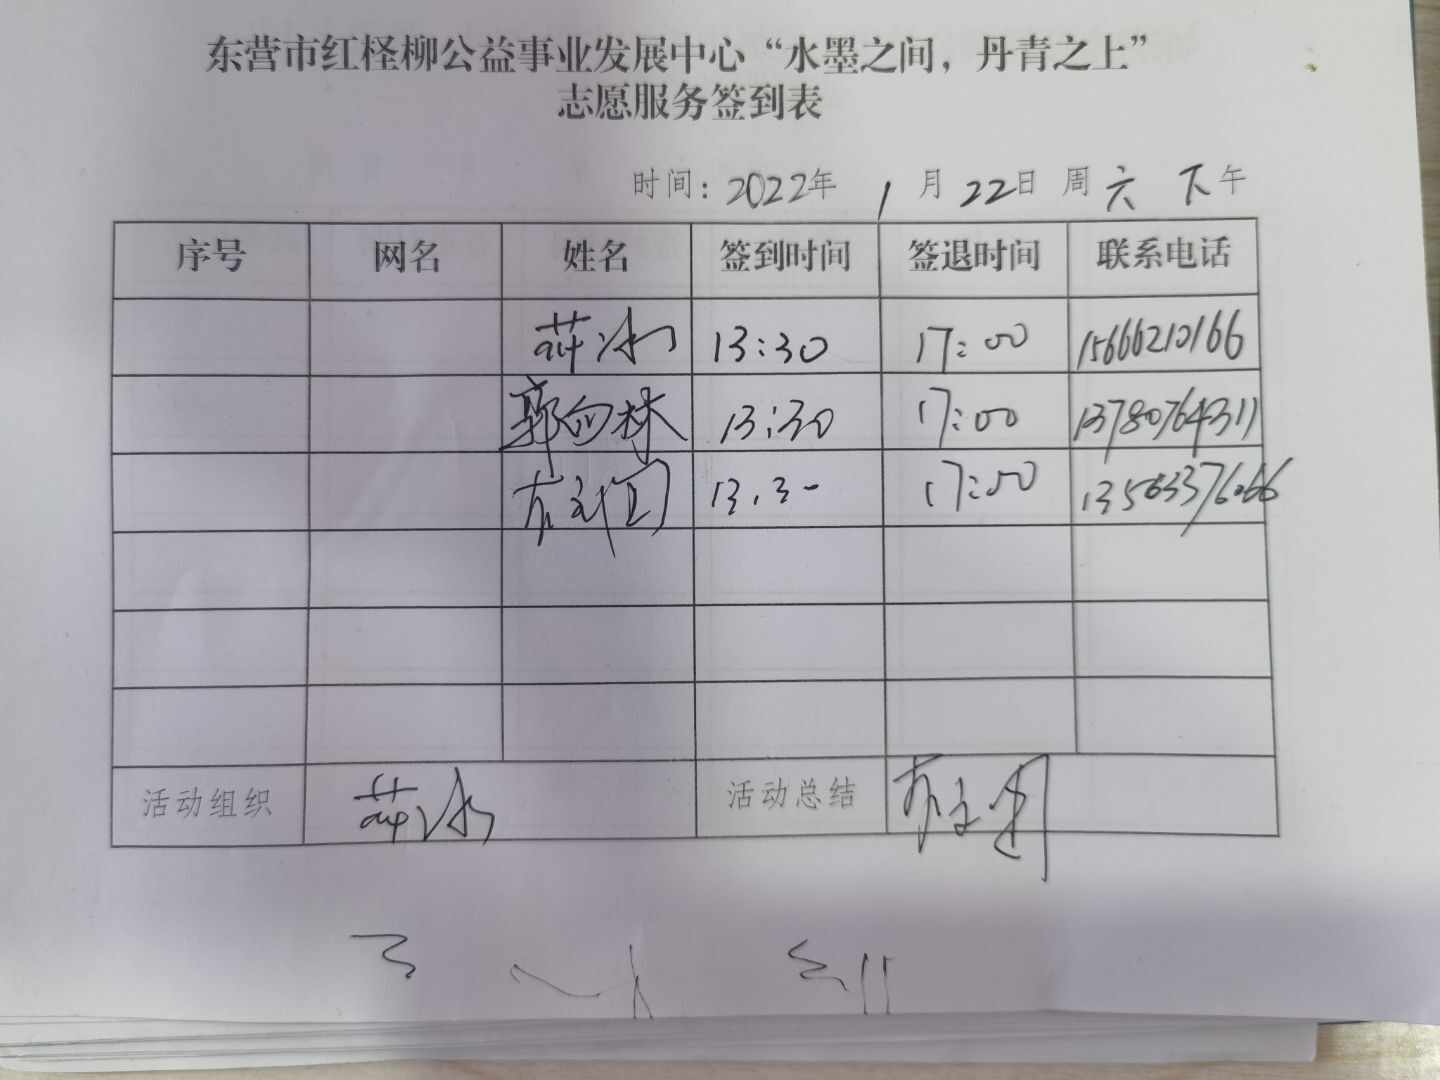 东营市红柽柳公益事业发展中心“水墨之间，丹青之上”
志愿服务签到表
时间：2022年 1月22日 周六 下午
序号 网名 姓名 签到时间 签退时间 联系电话
13:30 17:00 15666210166
郭向林 13:30 17:00 13780764311
13.30 17:00
活动组织 活动总结